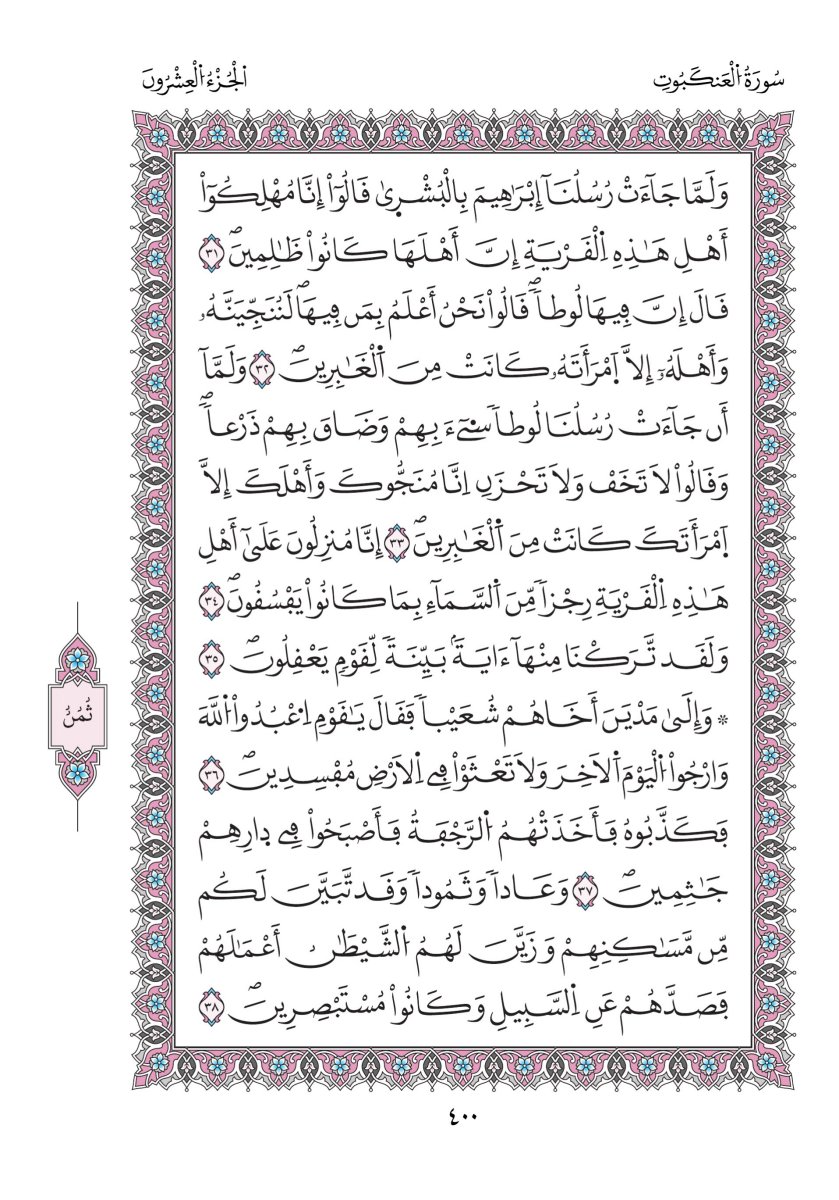 سُورَةُ الْعَنكَبُوتِ
الْجُزْءُ الْعِشْرُونَ
وَلَمَّا جَآءَتْ رُسُلُنَآ إِبْرَٰهِيمَ بِالْبُشْر۪يٰ قَالُوٓاْ إِنَّا مُهْلِكُوٓاْ
أَهْلِ هَٰذِهِ اِ۬لْقَرْيَةِ إِنَّ أَهْلَهَا كَانُواْ ظَٰلِمِينَۖ ٣١
قَالَ إِنَّ فِيهَا لُوطاٗۖ قَالُواْ نَحْنُ أَعْلَمُ بِمَن فِيهَاۖ لَنُنَجِّيَنَّهُۥ
وَأَهْلَهُۥٓ إِلَّا اَ۪مْرَأَتَهُۥ كَانَتْ مِنَ اَ۬لْغَٰبِرِينَۖ ٣٢ وَلَمَّآ
أَن جَآءَتْ رُسُلُنَا لُوطاٗ سِےٓءَ بِهِمْ وَضَاقَ بِهِمْ ذَرْعاٗۖ
وَقَالُواْ لَا تَخَفْ وَلَا تَحْزَنِ اِنَّا مُنَجُّوكَ وَأَهْلَكَ إِلَّا
اَ۪مْرَأَتَكَ كَانَتْ مِنَ اَ۬لْغَٰبِرِينَۖ ٣٣ إِنَّا مُنزِلُونَ عَلَيٰٓ أَهْلِ
هَٰذِهِ اِ۬لْقَرْيَةِ رِجْزاٗ مِّنَ اَ۬لسَّمَآءِ بِمَا كَانُواْ يَفْسُقُونَۖ ٣٤
وَلَقَد تَّرَكْنَا مِنْهَآ ءَايَةَۢ بَيِّنَةٗ لِّقَوْمٖ يَعْقِلُونَۖ ٣٥
* وَإِلَيٰ مَدْيَنَ أَخَاهُمْ شُعَيْباٗ فَقَالَ يَٰقَوْمِ اِ۟عْبُدُواْ اُ۬للَّهَ
وَارْجُواْ اُ۬لْيَوْمَ اَ۬لَاخِرَ وَلَا تَعْثَوْاْ فِے اِ۬لَارْضِ مُفْسِدِينَۖ ٣٦
فَكَذَّبُوهُ فَأَخَذَتْهُمُ اُ۬لرَّجْفَةُ فَأَصْبَحُواْ فِے د۪ارِهِمْ
جَٰثِمِينَۖ ٣٧ وَعَاداٗ وَثَمُوداٗ وَقَد تَّبَيَّنَ لَكُم
مِّن مَّسَٰكِنِهِمْ وَزَيَّنَ لَهُمُ اُ۬لشَّيْطَٰنُ أَعْمَٰلَهُمْ
فَصَدَّهُمْ عَنِ اِ۬لسَّبِيلِ وَكَانُواْ مُسْتَبْصِرِينَۖ ٣٨
ثُمُنُ
٤٠٠